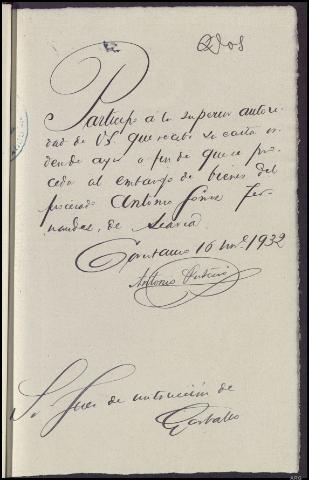 Dos
Participo á la superior autori
dad de VS. que recibi su carta or
den de ayer a fin de que se pro
ceda al embargo de bienes del
procesado Antonio Gomez Fer
nandez, de
16 nvre 1932
Antonio
Sr Juez de instrucción de
Carballo